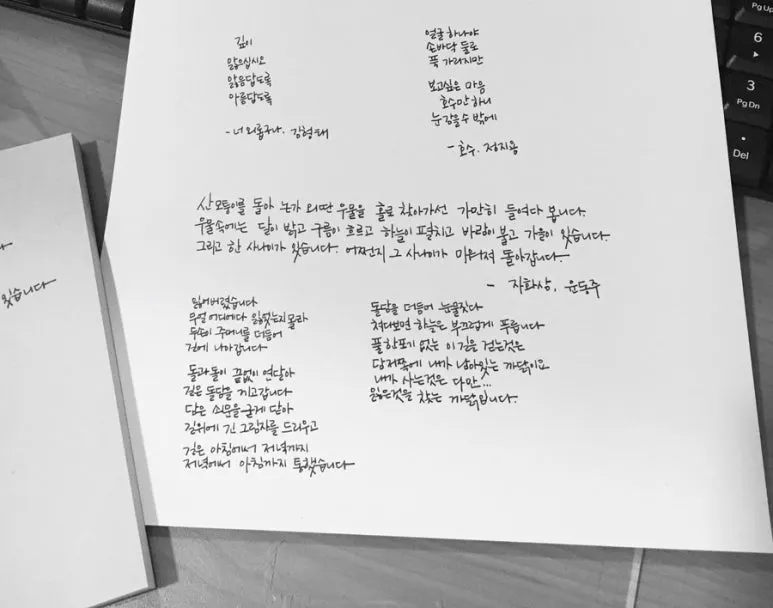 깊이
앓으십시오
앓음답도록
아름답도록
- 너 외롭구나. 김형태
얼굴 하나야
손바닥 둘로
푹 가리지만
보고싶은 마음
호수만 하니
눈 감을 수 밖에
- 호수. 정지용
산모퉁이를 돌아 논가 외딴 우물을 홀로 찾아가선 가만히 들여다 봅니다.
우물속에는 달이 밝고 구름이 흐르고 하늘이 펼치고 바람이 불고 가을이 있습니다.
그리고 한 사나이가 있습니다. 어쩐지 그 사나이가 미워져 돌아갑니다.
- 자화상, 윤동주
잃어버렸습니다
무얼 어디에다 잃었는지 몰라
두손이 주머니를 더듬어
길에 나아갑니다
돌과 돌이 끝없이 연달아
길은 돌담을 끼고 갑니다
담은 쇠문을 굳게 닫아
길위에 긴 그림자를 드리우고
길은 아침에서 저녁까지
저녁에서 아침까지 통했습니다
돌담을 더듬어 눈물짓다
쳐다보면 하늘은 부끄럽게 푸릅니다
풀 한포기 없는 이 길을 걷는것은
담 저쪽에 내가 남아있는 까닭이요
내가 사는것은 다만...
잃은것을 찾는 까닭입니다.
PgUp
6
3
PgDn
.
Del